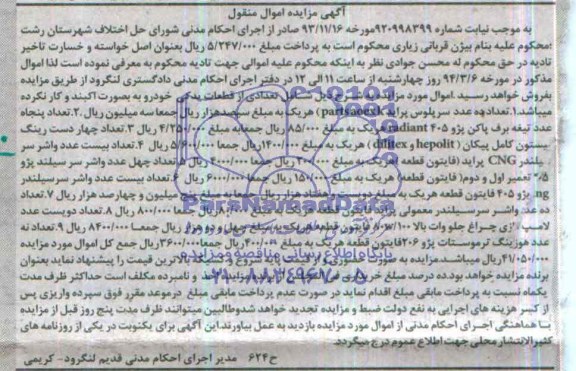 آگهی مزایده اموال منقول
به موجب نیابت شماره ۹۲۰۹۹۸۳۹۹مورخه ۹۳/۱۱/۱۶ صادر از اجرای احکام مدنی شورای حل اختلاف شهرستان رشت
محکوم علیه بنام بیژن قربانی زیاری محکوم است به پرداخت مبلغ ۵/۲۴۷/۰۰۰ ریال بعنوان اصل خواسته و خسارت تاخیر
تادیه در حق محکوم له محسن جوادی نظر به اینکه محکوم علیه اموالی جهت تادیه محکوم به معرفی نموده است لذا اموال
مذکور در مورخه ۹۴/۳/۶ روز چهارشنبه از ساعت ۱۱ الی ۱۲ در دفتر اجرای احکام مدنی دادگستری لنگرود از طریق مزایده
بفروش خواهد رسید .اموال مورد تعدادی از قطعات یدکی خودرو به صورت آکبند و کار نکرده
میباشد۱.تعداد ده عدد سرپلوس پراید (parts هریک به مبلغ سیصدهزار ریال جمعا سه میلیون ریال .۲.تعداد پنجاه
عدد تیغه برف پاکن پژو ۴۰۵ radiant هریک به مبلغ ۸۵/۰۰۰ ریال جمعا به مبلغ ۴/۲۵۰/۰۰۰ ریال ۳.تعداد چهار دست رینگ
پیستون کامل پیکان (hepolit و هر یک به مبلغ ۱۴۰۰/۰۰۰ریال جمعا ۵/۶۰۰/۰۰۰ ریال ۴.تعداد بیست عدد واشر سر
سیلندر CNG پراید (فایتون قطعه هریک به مبلغ ۲۰۰/۰۰۰ ریال جمعا ۴/۰۰۰/۰۰۰ ریال ۵.تعداد چهل عدد واشر سر سیلندر پژو
تعمیر اول و دوم( فایتون قطعه )هریک به مبلغ ۱۵۰/۰۰۰ ریال جمعا ۶/۰۰۰/۰۰۰ ریال ۶.تعداد بیست عدد واشر سر سیلندر
پژو ۴۰۵ فایتون قطعه هریک به مبلغ دویست هفتاد هزار ریال جمعا به مبلغ پنج میلیون و چهارصد هزار ریال ۷.تعداد
ده عدد واشر سر سیلندر معمولی پراید فایتون قطعه هریک به مبلغ ۸۰/۰۰۰ ریال جمعا ۸۰۰/۰۰۰ ریال ۸.تعداد دویست عدد
لامپ چراغ جلو وات بالا ۱۰۰/ فایتون قطعه هریک به مبلغ چهل و دو هزار ریال جمعا ۸۴۰۰/۰۰۰ ریال ۹.تعداد نه
عدد هوزینگ ترموستات پژو ۲۰۶ فایتون قطعه هریک به مبلغ ۴۰۰/۰۰۰ ریال جمعا۳۶۰۰/۰۰۰ ریال جمع کل اموال مورد مزایده
۴۱/۰۵۰/۰۰۰ ریال میباشد.مزایده به صورت قیمت پایه شروع و کسی که بالاترین قیمت را پیشنهاد نماید بعنوان
برنده مزایده خواهد بود.ده درصد مبلغ خریداری اخذ و نامبرده مکلف است حداکثر ظرف مدت
یکماه نسبت به پرداخت مابقی مبلغ اقدام نماید در صورت عدم پرداخت مابقی مبلغ در موعد مقرر فوق سپرده واریزی پس
از کسر هزینه های اجرایی به نفع دولت ضبط و مزایده تجدید خواهد شدوطالبین میتوانند ظرف مدت پنج روز قبل از مزایده
با هماهنگی اجرای احکام مدنی از اموال مورد مزایده بازدید به عمل بیاورند.این آگهی برای یکنوبت در یکی از روزنامه های
کثیرالانتشار محلی جهت اطلاع عموم درج میگردد.
ح۶۲۴ مدیر اجرای احکام مدنی قدیم لنگرود- کریمی
ParsNamadData
پایگاه اطلاع رسانی مناقصه و مزایده
۰۲۱-۸۸۳۴۹۶۷۰-۵